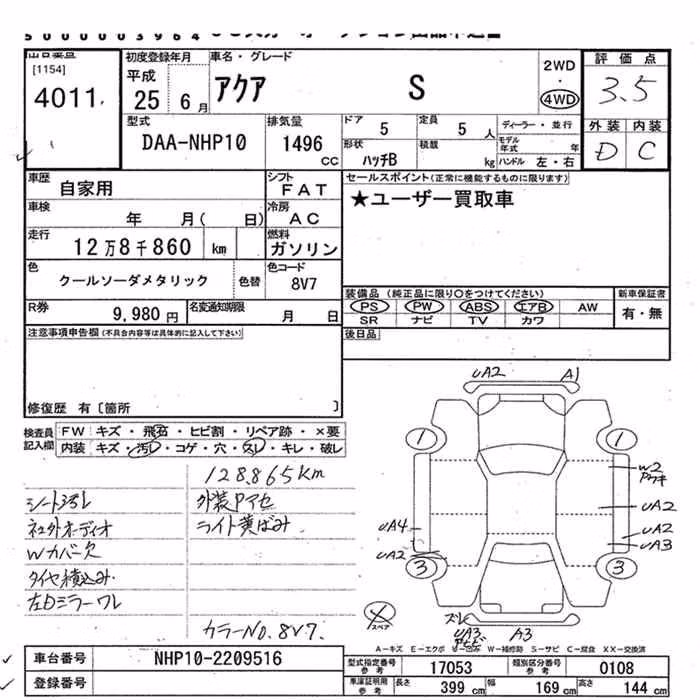 5000003964
出品番号 初度登録年月 車名・グレード 2WD・4WD 評価点
[1154]
4011
平成25 6月
アクア S
3.5
外装 内装
D C
型式 排気量 ドア 定員 ディーラー・並行
DAA-NHP10 1496cc 5 5人
形状 積載 モデル年式 年
ハッチB kg ハンドル 左・右
車歴 自家用 シフト FAT
セールスポイント(正常に機能するものに限ります)
★ユーザー買取車
車検 年 月( 日) 冷房 AC
走行 12万8千860 km 燃料 ガソリン
色 クールソーダメタリック 色替 色コード 8V7
R券 9,980円 名変通知期限 月 日
装備品(純正品に限り○をつけてください) 新車保証書
PS PW ABS エアB AW 有・無
SR ナビ TV カワ
後日品
注意事項申告欄(不具合内容等は具体的に記入して下さい)
修復歴 有〔箇所 〕
検査員記入欄
FW キズ・飛石・ヒビ割・リペア跡・×要
内装 キズ・汚レ・コゲ・穴・スレ・キレ・破レ
128.865km
シート汚レ 外装Pアセ
社外オーディオ ライト黄ばみ
Wカバー欠
タイヤ積込み
左Dミラーワレ
カラーNo.8V7.
UA2 A1
1 1
W2
UA2
UA4 UA2
UA2 UA3
3 3
スペア
スレ
UA3 A3
A-キズ E-エクボ W-補修跡 S-サビ C-腐食 XX-交換済
車台番号 NHP10-2209516
登録番号
型式指定番号 参考 17053 類別区分番号 参考 0108
車庫証明用 参考 長さ 399 cm 幅 169 cm 高さ 144 cm